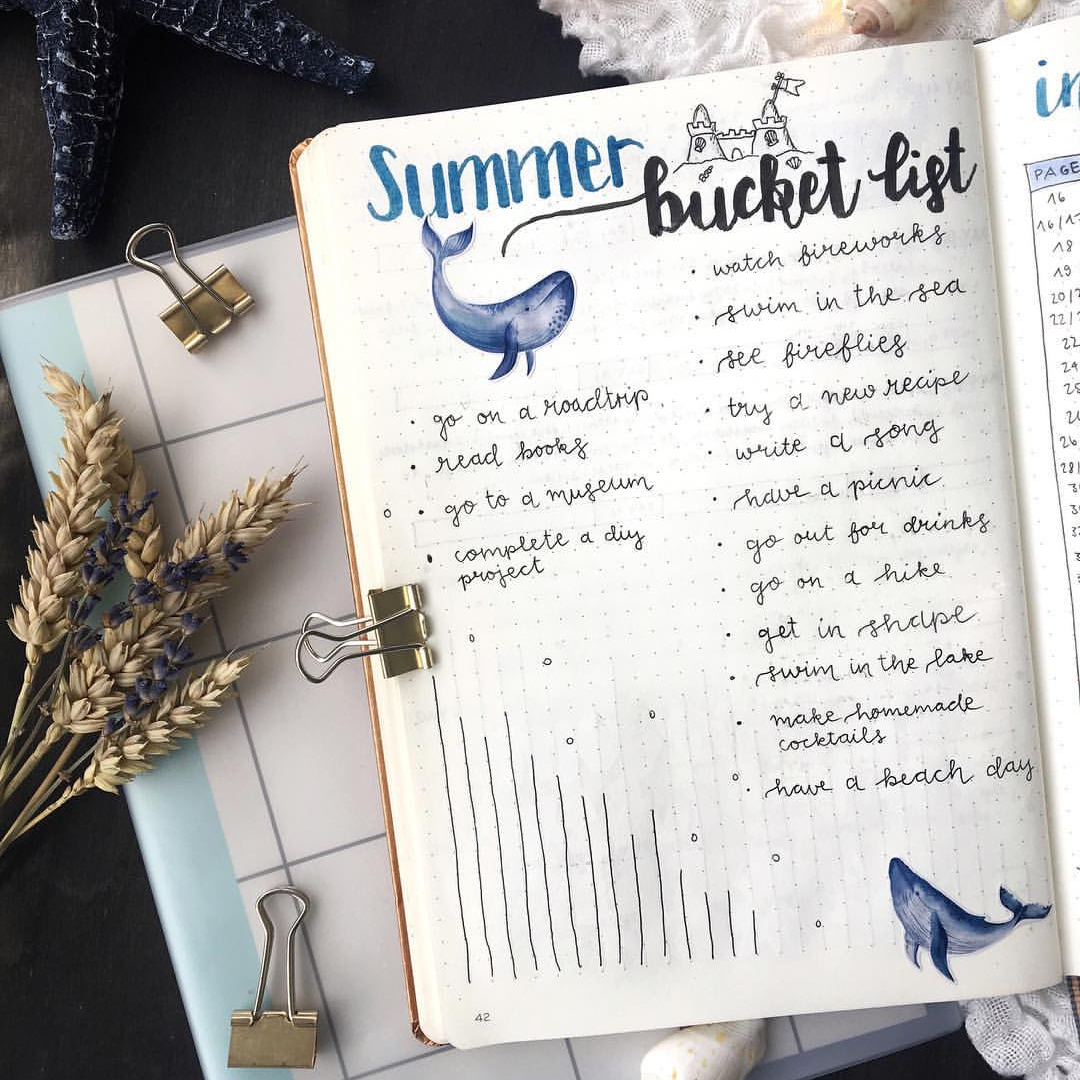 Summer bucket list
go on a roadtrip
read books
go to a museum
complete a diy
project
watch fireworks
swim in the sea
see fireflies
try a new recipe
write a song
have a picnic
go out for drinks
go on a hike
get in shape
swim in the lake
make homemade
cocktails
have a beach day
42
PAGE
16
18
19
22